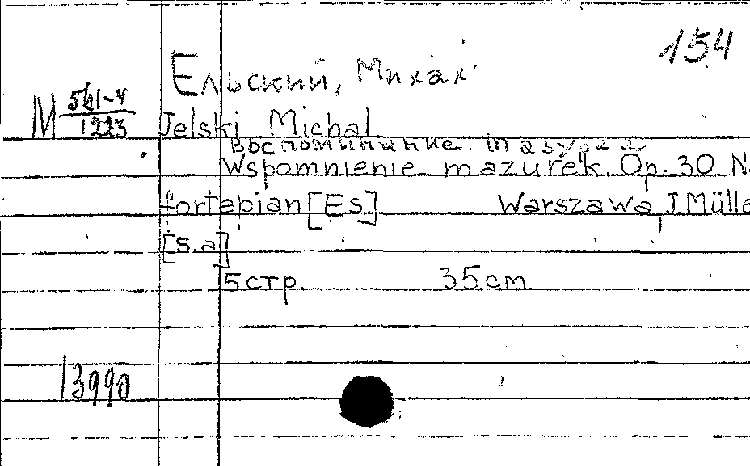 154
Ельский, Михал
М 561-4
1223
Jelski Michal
Воспоминание. mazурка
Wspomnienie mazurek. Op. 30 N.
fortepian [Es] Warszawa, J. Mülle
[S.a]
5 стр. 35 cm
13990